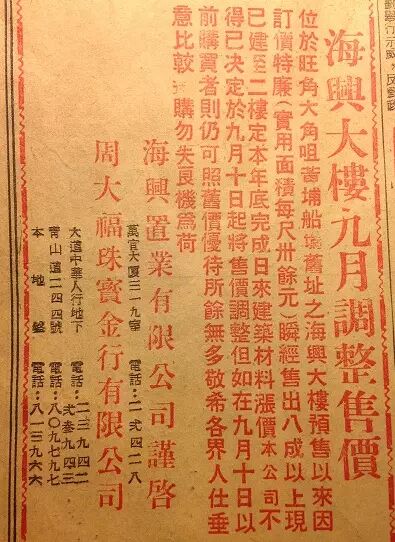 海興大樓九月調整售價
位於旺角大角咀黃埔船塢舊址之海興大樓預售以來因
訂價特廉（實用面積每尺卅餘元）瞬經售出八成以上現
已建至二樓定本年底完成日來建築材料漲價本公司不
得已決定於九月十日起將售價調整但如在九月十日以
前購買者則仍可照舊價優待所餘無多敬希各界人仕垂
意比較選購勿失良機為荷
海興置業有限公司謹啓
萬宜大厦三一九室 電話：二弍四二八
周大福珠寶金行有限公司
大道中華人行地下 電話：二三九四二
弍叁九四三
青山道二四四號 電話：八〇九七九七
本地盤 電話：八一三九六六